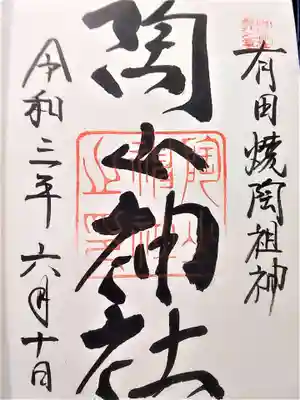 有田焼陶祖神
陶山神社
令和三年六月十日